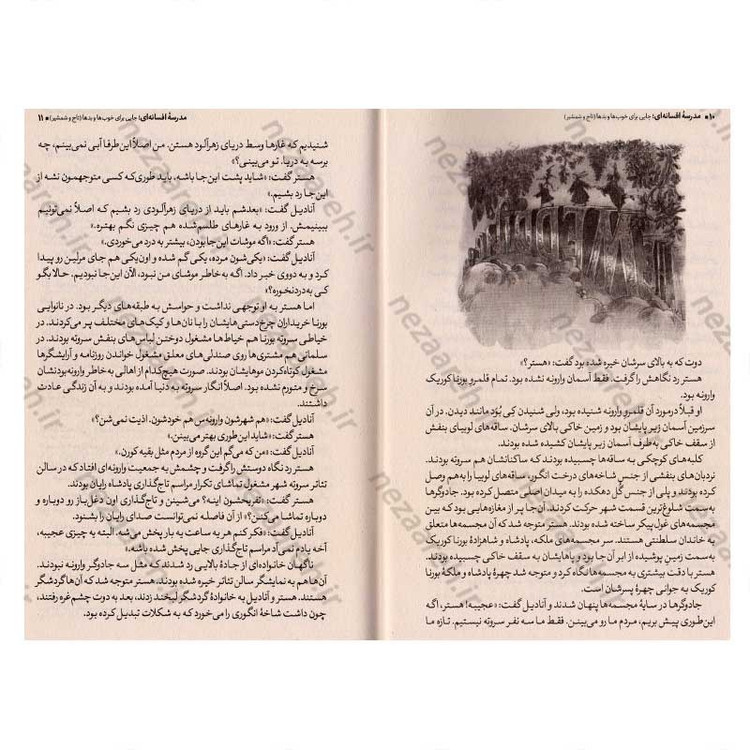 ۱۰ • مدرسهٔ افسانه‌ای: جایی برای خوب‌ها و بدها (تاج و شمشیر)
دوت که به بالای سرشان خیره شده بود گفت: «هستر؟»
هستر رد نگاهش را گرفت. فقط آسمان وارونه نشده بود. تمام قلمرو بورنا کوریک
وارونه بود.
او قبلاً درمورد آن قلمرو وارونه شنیده بود، ولی شنیدن کِی بُوَد مانند دیدن. در آن
سرزمین آسمان زیر پایشان بود و زمین خاکی بالای سرشان. ساقه‌های لوبیای بنفش
از سقف خاکی به‌طرف آسمان زیر پایشان کشیده شده بودند.
کلبه‌های کوچکی به ساقه‌ها چسبیده بودند که ساکنانشان هم سروته بودند.
نردبان‌های بنفشی از جنس شاخه‌های درخت انگور، ساقه‌های لوبیا را به‌هم وصل
کرده بودند و پلی از جنس گُل دهکده را به میدان اصلی متصل کرده بود. جادوگرها
به‌سمت شلوغ‌ترین قسمت شهر حرکت کردند. آن جا پر از مغازه‌هایی بود که بین
مجسمه‌های غول‌پیکر ساخته شده بودند. هستر متوجه شد که آن مجسمه‌ها متعلق
به خاندان سلطنتی هستند. سر مجسمه‌های ملکه، پادشاه و شاهزادهٔ بورنا کوریک
به‌سمت زمینِ پوشیده از ابر آن جا بود و پاهایشان به سقف خاکی چسبیده بودند.
هستر با دقت بیشتری به مجسمه‌ها نگاه کرد و متوجه شد چهرهٔ پادشاه و ملکهٔ بورنا
کوریک به جوانی چهرهٔ پسرشان است.
جادوگرها در سایهٔ مجسمه‌ها پنهان شدند و آنادیل گفت: «عجیبه! هستر، اگه
این‌طوری پیش بریم، مردم ما رو می‌بینن. فقط ما سه نفر سروته نیستیم. تازه ما
مدرسهٔ افسانه‌ای: جایی برای خوب‌ها و بدها (تاج و شمشیر) • ۱۱
شنیدیم که غارها وسط دریای زهرآلود هستن. من اصلاً این‌طرفا آبی نمی‌بینم، چه
برسه به دریا. تو می‌بینی؟»
هستر گفت: «شاید پشت این‌جا باشه، باید طوری‌که کسی متوجهمون نشه از
این‌جا رد بشیم.»
آنادیل گفت: «بعدشم باید از دریای زهرآلودی رد بشیم که اصلاً نمی‌تونیم
ببینیمش. از ورود به غارهای طلسم‌شده هم چیزی نگم بهتره.»
هستر گفت: «اگه موشات این‌جا بودن، بیشتر به درد می‌خوردی.»
آنادیل گفت: «یکی‌شون مرده، یکی گم شده و اون‌یکی هم جای مرلین رو پیدا
کرد و به دووی خبر داد. اگه به‌خاطر موشای من نبود، الآن این‌جا نبودیم. حالا بگو
کی به‌دردنخوره؟»
اما هستر به او توجهی نداشت و حواسش به طبقه‌های دیگر بود. در نانوایی
بورنا خریداران چرخ‌دستی‌هایشان را با نان‌ها و کیک‌های مختلف پر می‌کردند. در
خیاطی سروتهٔ بورنا هم خیاط‌ها مشغول دوختن لباس‌های بنفش سروته بودند. در
سلمانی هم مشتری‌ها روی صندلی‌های معلق مشغول خواندن روزنامه و آرایشگرها
مشغول کوتاه‌کردن موهایشان بودند. صورت هیچ‌کدام از اهالی به‌خاطر وارونه‌بودنشان
سرخ و متورم نشده بود. اصلاً انگار سروته به دنیا آمده بودند و به آن زندگی عادت
داشتند.
آنادیل گفت: «هم شهرشون وارونه‌س هم خودشون. اذیت نمی‌شن؟»
هستر گفت: «شاید این‌طوری بهتر می‌بینن.»
آنادیل گفت: «من که می‌گم این گروه از مردم مثل بقیه کورن.»
هستر رد نگاه دوستش را گرفت و چشمش به جمعیت وارونه‌ای افتاد که در سالن
تئاتر سروته شهر مشغول تماشای تکرار مراسم تاج‌گذاری پادشاه رایان بودند.
هستر گفت: «تفریحشون اینه؟ می‌شینن و تاج‌گذاری اون دغل‌باز رو دوباره و
دوباره تماشا می‌کنن؟» از آن فاصله نمی‌توانست صدای رایان را بشنود.
آنادیل گفت: «فکر کنم هر یه ساعت یه بار پخش می‌شه. البته یه چیزی عجیبه،
آخه یادم نمی‌آد مراسم تاج‌گذاری جایی پخش شده باشه.»
ناگهان خانواده‌ای از جادهٔ بالایی رد شدند که مثل سه جادوگر وارونه نبودند.
آن‌ها هم به نمایشگر سالن تئاتر خیره شده بودند. هستر متوجه شد که آن‌ها گردشگر
هستند. هستر و آنادیل به خانوادهٔ گردشگر لبخند زدند، بعد به دوت چشم‌غره رفتند،
چون داشت شاخهٔ انگوری را می‌خورد که به شکلات تبدیل کرده بود.
nezaareh.ir
nezaareh.ir
nezaareh.ir
nezaareh.ir